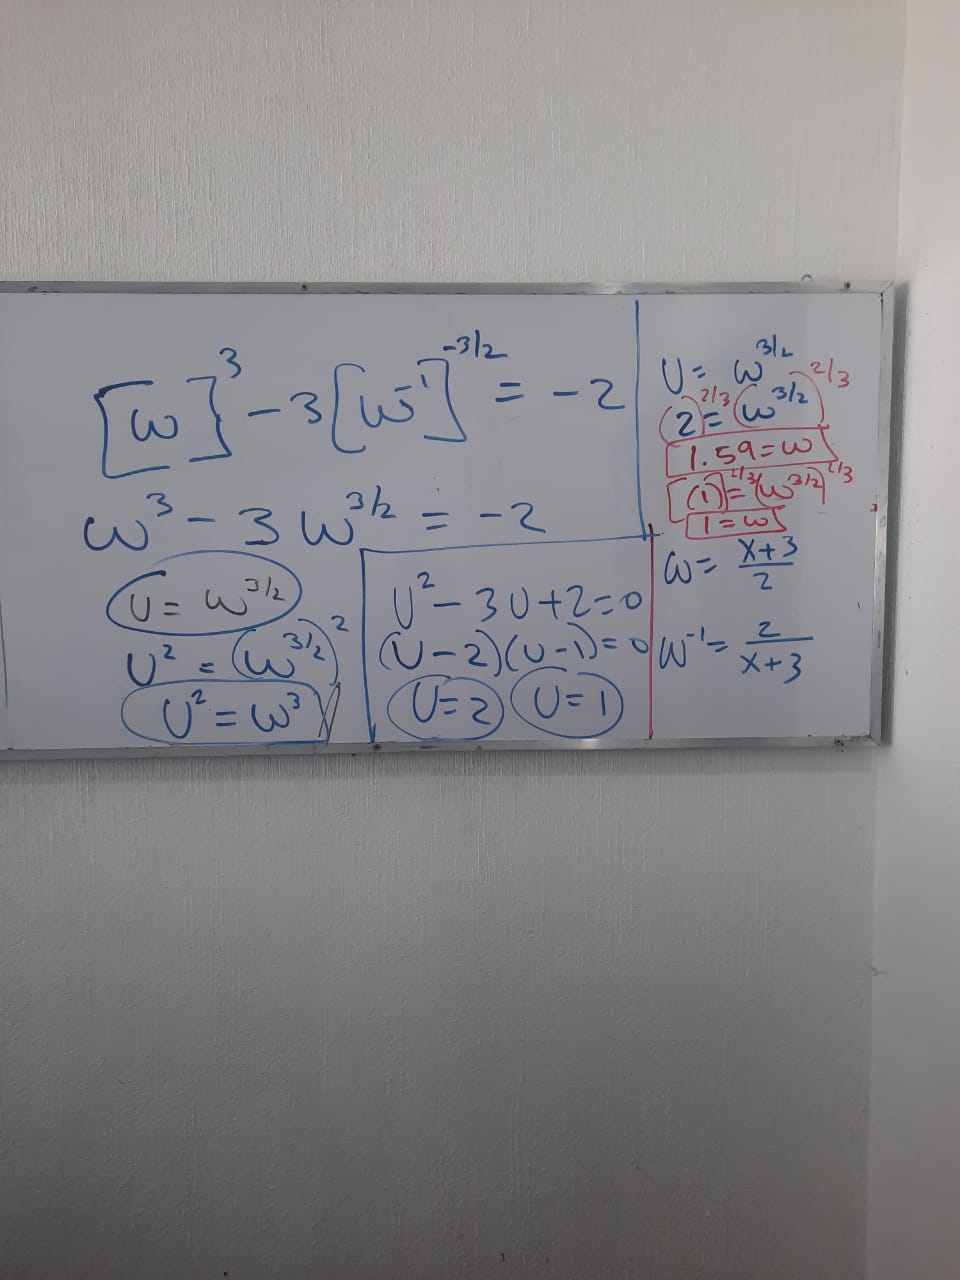 [ω]³ - 3[ω⁻¹]^-3/2 = -2
ω³ - 3 ω^3/2 = -2
U = ω^3/2
U² = (ω^3/2)²
U² = ω³
U² - 3U + 2 = 0
(U - 2)(U - 1) = 0
U = 2 U = 1
U = ω^3/2
(2)^2/3 = (ω^3/2)^2/3
1.59 = ω
(1)^2/3 = (ω^3/2)^2/3
1 = ω
ω = x+3/2
ω⁻¹ = 2/x+3